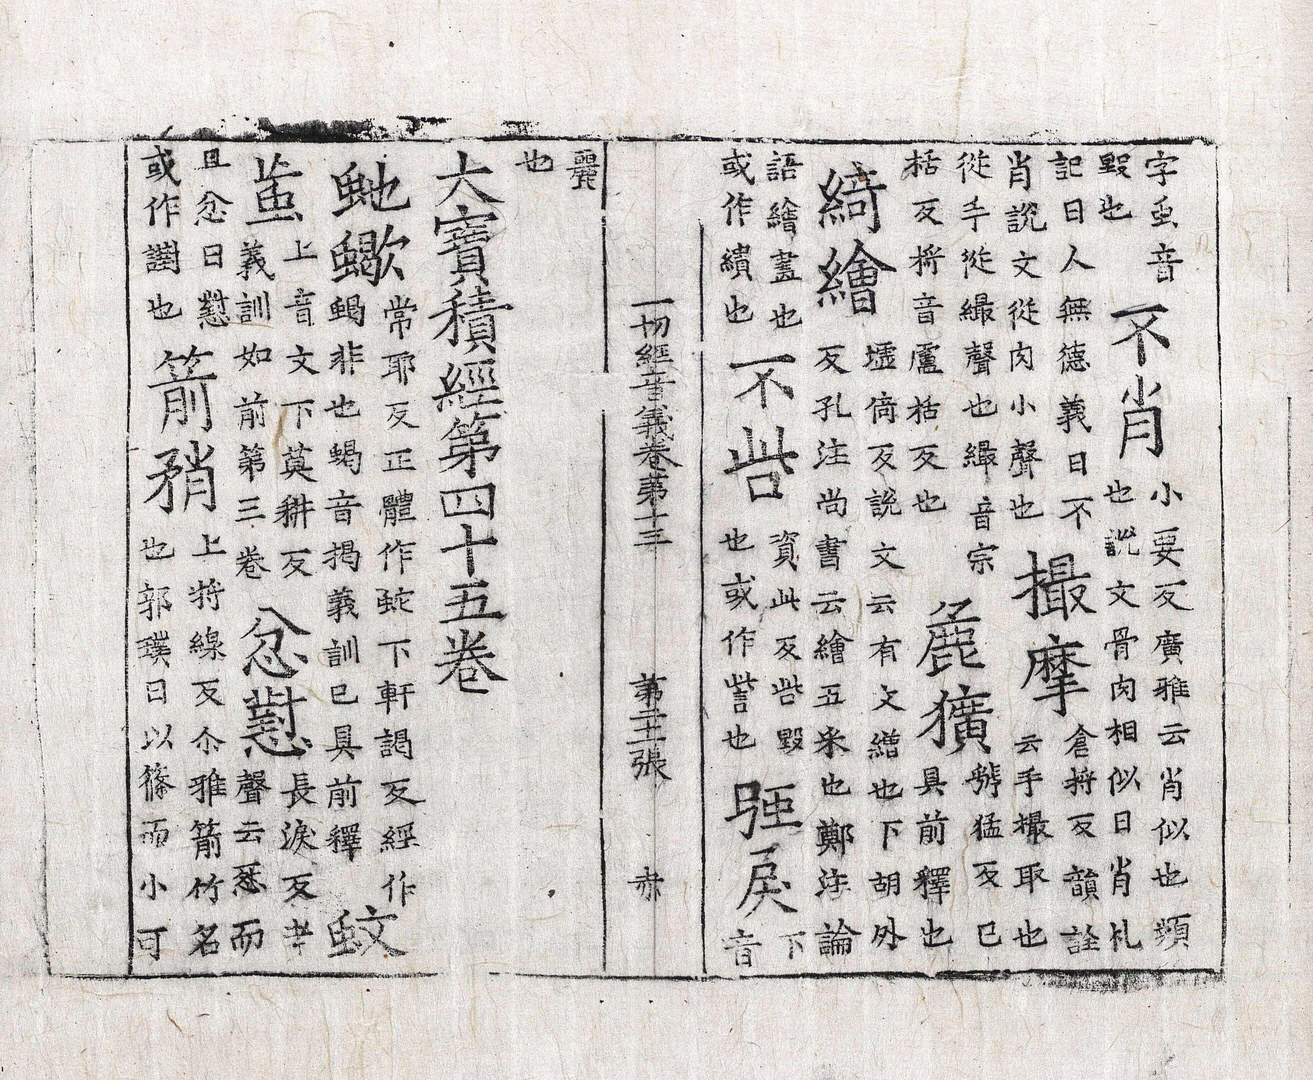 字䖝音
毀也
不肖
小要反廣雅云肖似也類
也説文骨肉相似曰肖札
記曰人無德義曰不
肖説文從肉小聲也
撮摩
倉捋反韻詮
云手撮取也
從手從繓聲也繓音宗
括反捋音盧括反也
麁獷
虢猛反已
具前釋也
綺繪
墟倚反説文云有文繒也下胡外
反孔注尚書云繪五采也鄭注論
語繪畫也
或作繢也
不呰
資此反呰毀
也或作訾也
戾
下
音
一切經音義卷第十三
張
赤
麗
也
大寶積經第四十五卷
虵蠍
常耶反正體作蛇下軒謁反經作
蝎非也蝎音揭義訓已具前釋
蚊
䖟
上音文下莫耕反
義訓如前第三卷
忿懟
長淚反考
聲云愁而
且忿曰懟
或作譵也
箭矟
上將線反尒雅箭竹名
也郭璞曰以篠而小可